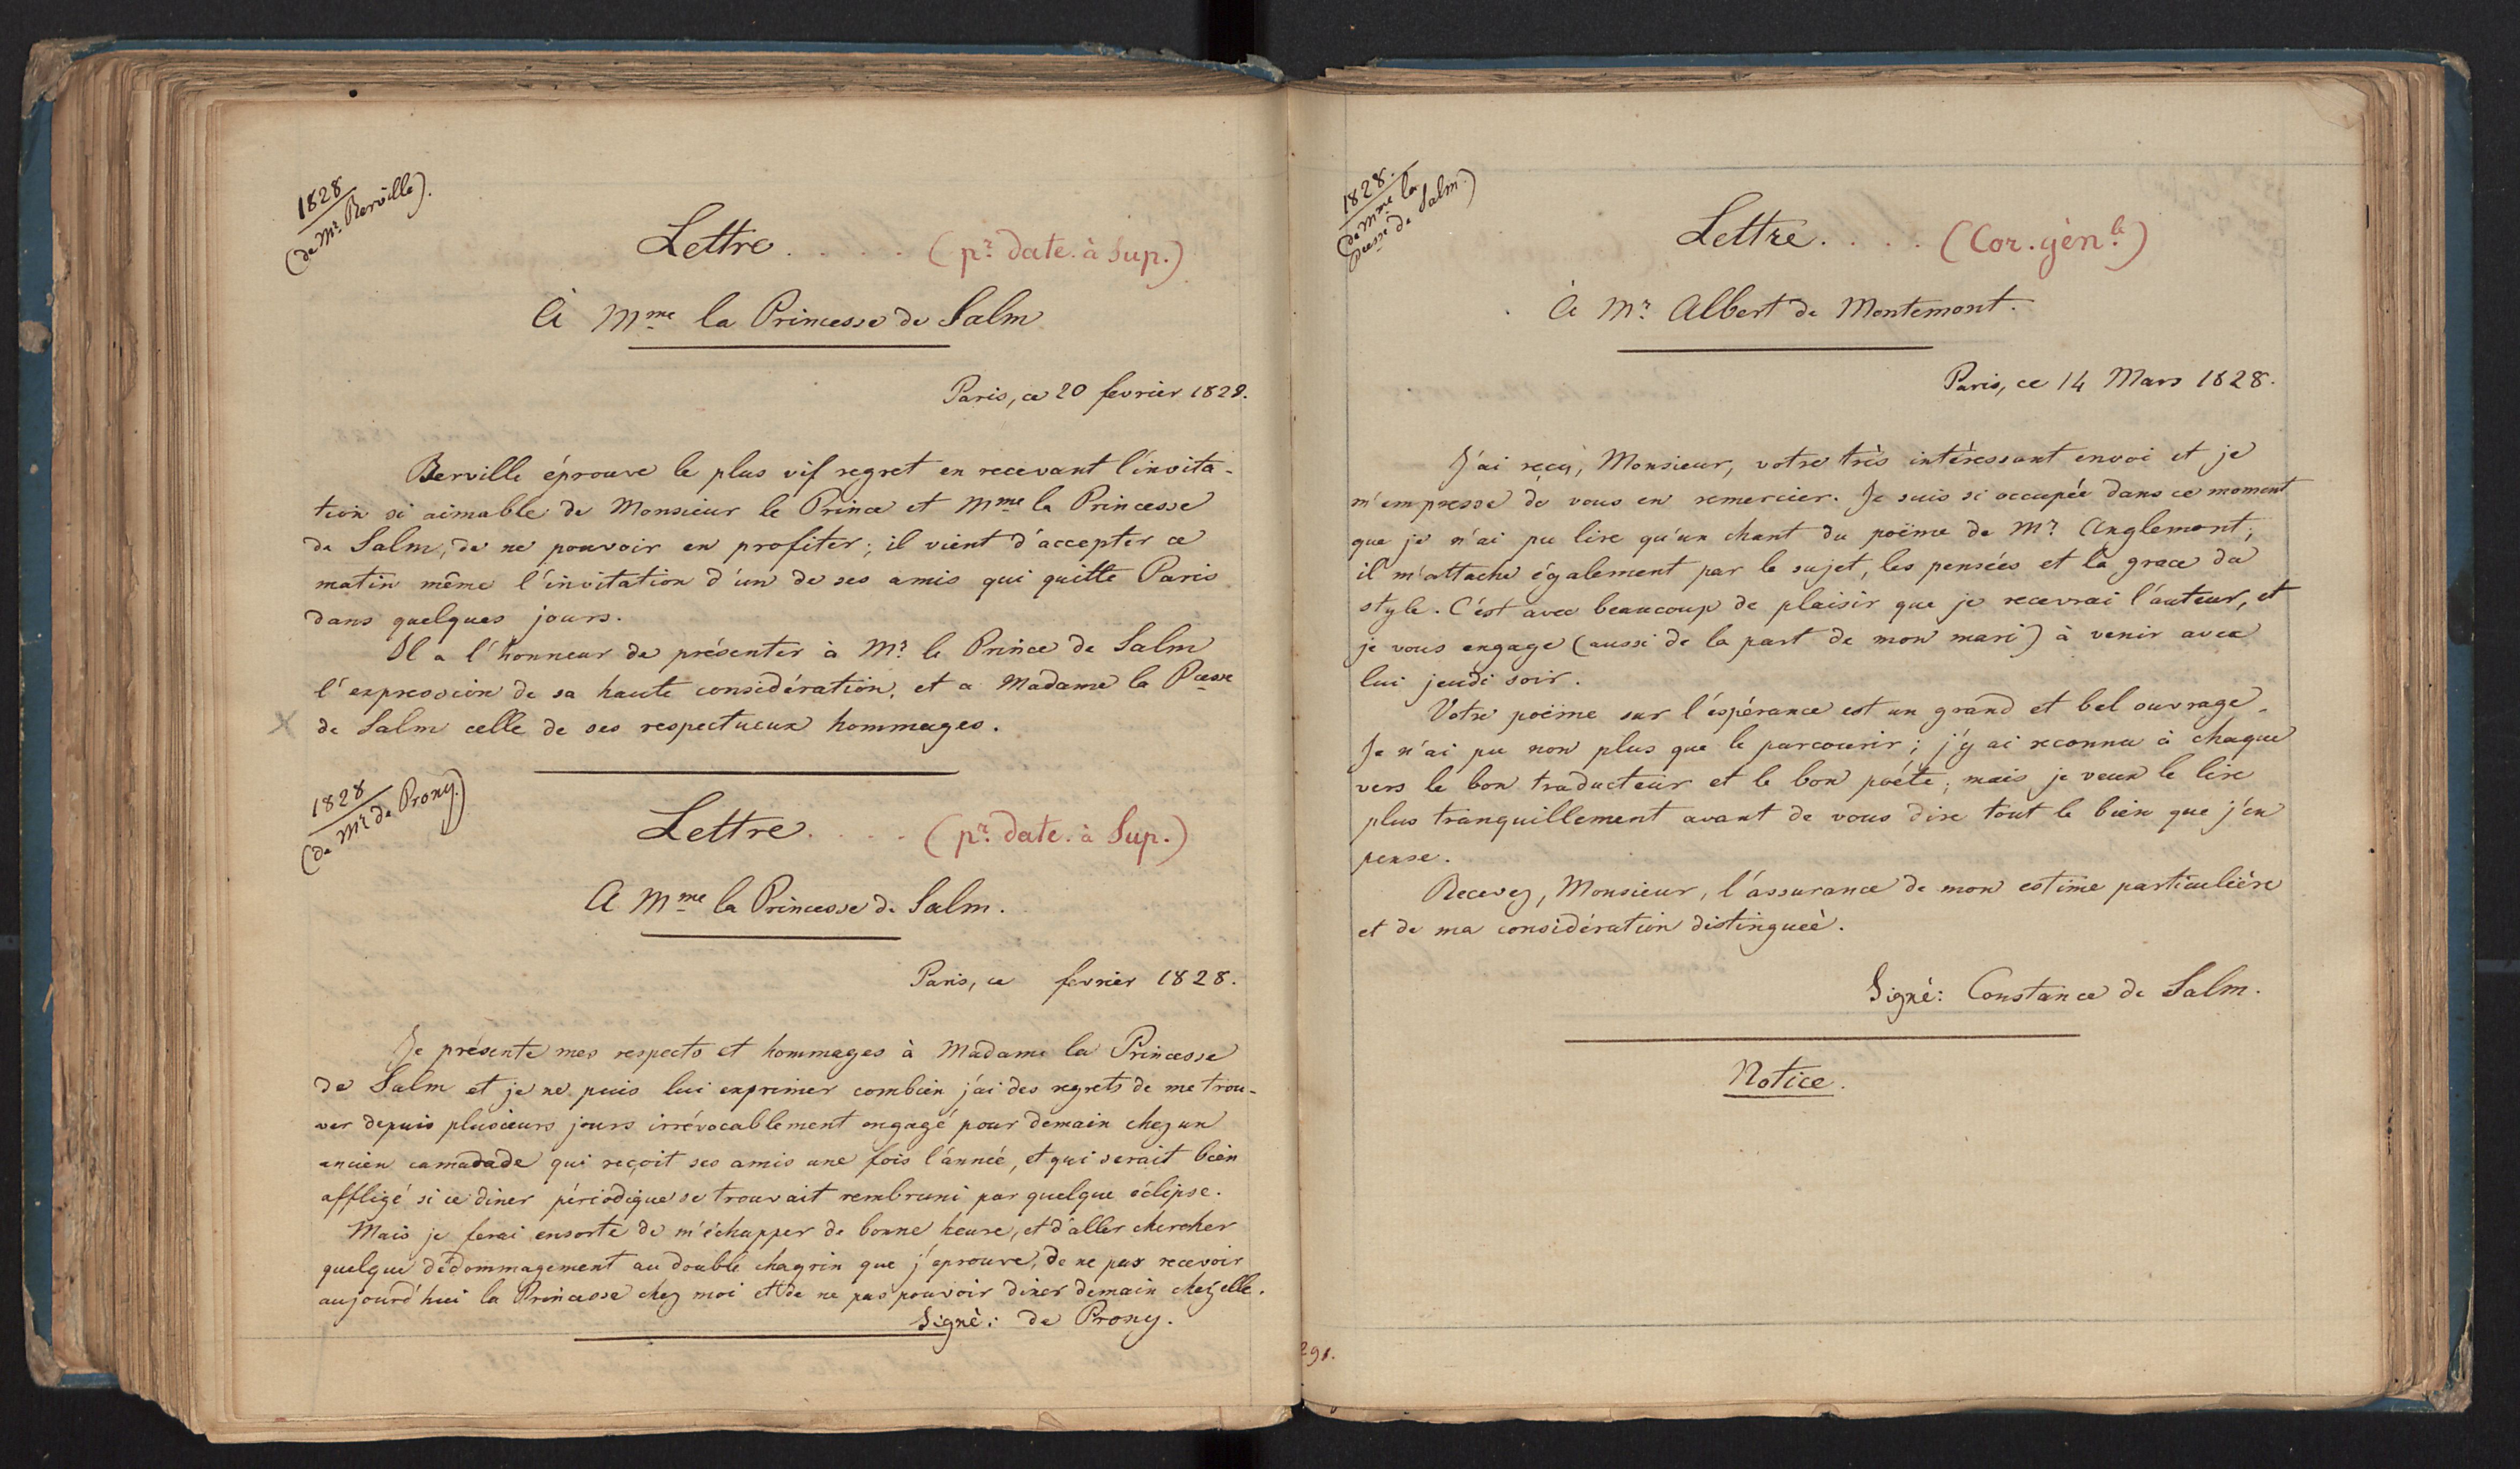 1828
(de Mr. Berville).
Lettre . . . . (pr. date. à Sup.)
À Mme la Princesse de Salm
Paris, ce 20 fevrier 1828.
Berville éprouve le plus vif regret en recevant l'invita-
tion si aimable de Monsieur le Prince et Mme la Princesse
de Salm, de ne pouvoir en profiter; il vient d'accepter ce
matin même l'invitation d'un de ses amis qui quitte Paris
dans quelques jours.
Il a l'honneur de présenter à Mr. le Prince de Salm
l'expression de sa haute considération, et a Madame la Pcesse
de Salm celle de ses respectueux hommages.
1828
(de Mr. de Prony.)
Lettre . . . . (pr. date. à Sup.)
A Mme la Princesse de Salm.
Paris, ce fevrier 1828.
Je présente mes respects et hommages à Madame la Princesse
de Salm et je ne puis lui exprimer combien j'ai des regrets de me trou-
ver depuis plusieurs jours irrévocablement engagé pour demain chez un
ancien camadade qui reçoit ses amis une fois l'année, et qui serait bien
affligé si ce diner périodique se trouvait rembruni par quelque éclipse.
Mais je ferai ensorte de m'échapper de bonne heure, et d'aller chercher
quelque dédommagement au double chagrin que j'éprouve, de ne pas recevoir
aujourd'hui la Princesse chez moi et de ne pas pouvoir diner demain chez elle.
Signé: de Prony.
1828.
(de Mme la
Pcesse de Salm.)
Lettre . . . . (Cor. génle)
À Mr. Albert de Montemont.
Paris, ce 14 Mars 1828.
J'ai reçu, Monsieur, votre très intéressant envoi et je
m'empresse de vous en remercier. Je suis si occupée dans ce moment
que je n'ai pu lire qu'un chant du poëme de Mr. Anglemont;
il m'attache également par le sujet, les pensées et la grace du
style. C'est avec beaucoup de plaisir que je recevrai l'auteur, et
je vous engage (aussi de la part de mon mari) à venir avec
lui jeudi soir.
Votre poëme sur l'espérance est un grand et bel ouvrage.
Je n'ai pu non plus que le parcourir; j'y ai reconnu à chaque
vers le bon traducteur et le bon poéte; mais je veux le lire
plus tranquillement avant de vous dire tout le bien que j'en
pense.
Recevez, Monsieur, l'assurance de mon estime particulière
et de ma considération distinguée.
Signé: Constance de Salm.
Notice.